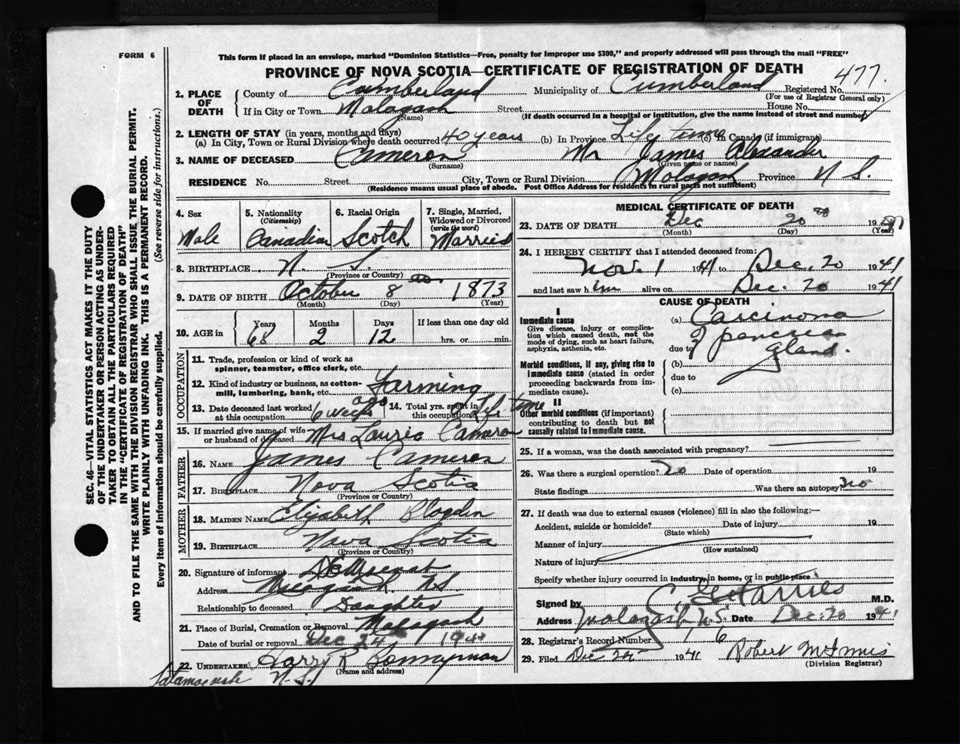 FORM 6
This form if placed in an envelope, marked "Dominion Statistics—Free, penalty for improper use $300," and properly addressed will pass through the mail "FREE"
PROVINCE OF NOVA SCOTIA—CERTIFICATE OF REGISTRATION OF DEATH
477.
1. PLACE OF DEATH
County of Cumberland Municipality of Cumberland Registered No.
(For use of Registrar General only)
If in City or Town Malagash Street House No.
(Name) (If death occurred in a hospital or institution, give the name instead of street and number)
2. LENGTH OF STAY (in years, months and days)
(a) In City, Town or Rural Division where death occurred 40 years (b) In Province Life time (c) In Canada (if immigrant)
3. NAME OF DECEASED Cameron Mr James Alexander
(Surname) (Given name or names)
RESIDENCE No. Street City, Town or Rural Division Malagash Province N S.
(Residence means usual place of abode. Post Office Address for residents in rural parts not sufficient)
4. Sex
Male
5. Nationality
(Citizenship)
Canadian
6. Racial Origin
Scotch
7. Single, Married, Widowed or Divorced
(write the word)
Married
8. BIRTHPLACE N. S.
(Province or Country)
9. DATE OF BIRTH October 8 1873
(Month) (Day) (Year)
10. AGE in
Years Months Days If less than one day old
68 2 12 hrs. or min.
OCCUPATION
11. Trade, profession or kind of work as spinner, teamster, office clerk, etc.
12. Kind of industry or business, as cotton-mill, lumbering, bank, etc. Farming
13. Date deceased last worked at this occupation 6 weeks ago 14. Total yrs. spent in this occupation Life time
15. If married give name of wife or husband of deceased Mrs Laurie Cameron
FATHER
16. NAME James Cameron
17. BIRTHPLACE Nova Scotia
(Province or Country)
MOTHER
18. MAIDEN NAME Elizabeth
19. BIRTHPLACE Nova Scotia
(Province or Country)
20. Signature of informant
Address NS
Relationship to deceased Daughter
21. Place of Burial, Cremation or Removal Malagash
Date of burial or removal Dec 24 19
22. UNDERTAKER Harry R
(Name and address)
N.S.
MEDICAL CERTIFICATE OF DEATH
23. DATE OF DEATH Dec 20th 19
(Month) (Day) (Year)
24. I HEREBY CERTIFY that I attended deceased from:
Nov. 1 1941 to Dec. 20 1941
and last saw him alive on Dec. 20 1941
CAUSE OF DEATH
I
Immediate cause
Give disease, injury or complication which caused death, not the mode of dying, such as heart failure, asphyxia, asthenia, etc.
(a) Carcinoma
due to of pancreas gland.
Morbid conditions, if any, giving rise to immediate cause (stated in order proceeding backwards from immediate cause).
(b)
due to
(c)
II
Other morbid conditions (if important) contributing to death but not causally related to immediate cause.
25. If a woman, was the death associated with pregnancy?
26. Was there a surgical operation? no Date of operation 19
State findings Was there an autopsy? no
27. If death was due to external causes (violence) fill in also the following:—
Accident, suicide or homicide? Date of injury 19
(State which)
Manner of injury
(How sustained)
Nature of injury
Specify whether injury occurred in industry, in home, or in public place
Signed by M.D.
Address Malagash N.S. Date Dec. 20 1941
28. Registrar's Record Number 6
29. Filed Dec 1941 Robert McInnis
(Division Registrar)
SEC. 46—VITAL STATISTICS ACT MAKES IT THE DUTY
OF THE UNDERTAKER OR PERSON ACTING AS UNDER-
TAKER TO OBTAIN ALL THE PARTICULARS REQUIRED
IN THE "CERTIFICATE OF REGISTRATION OF DEATH"
AND TO FILE THE SAME WITH THE DIVISION REGISTRAR WHO SHALL ISSUE THE BURIAL PERMIT.
WRITE PLAINLY WITH UNFADING INK. THIS IS A PERMANENT RECORD.
Every item of information should be carefully supplied. (See reverse side for instructions.)